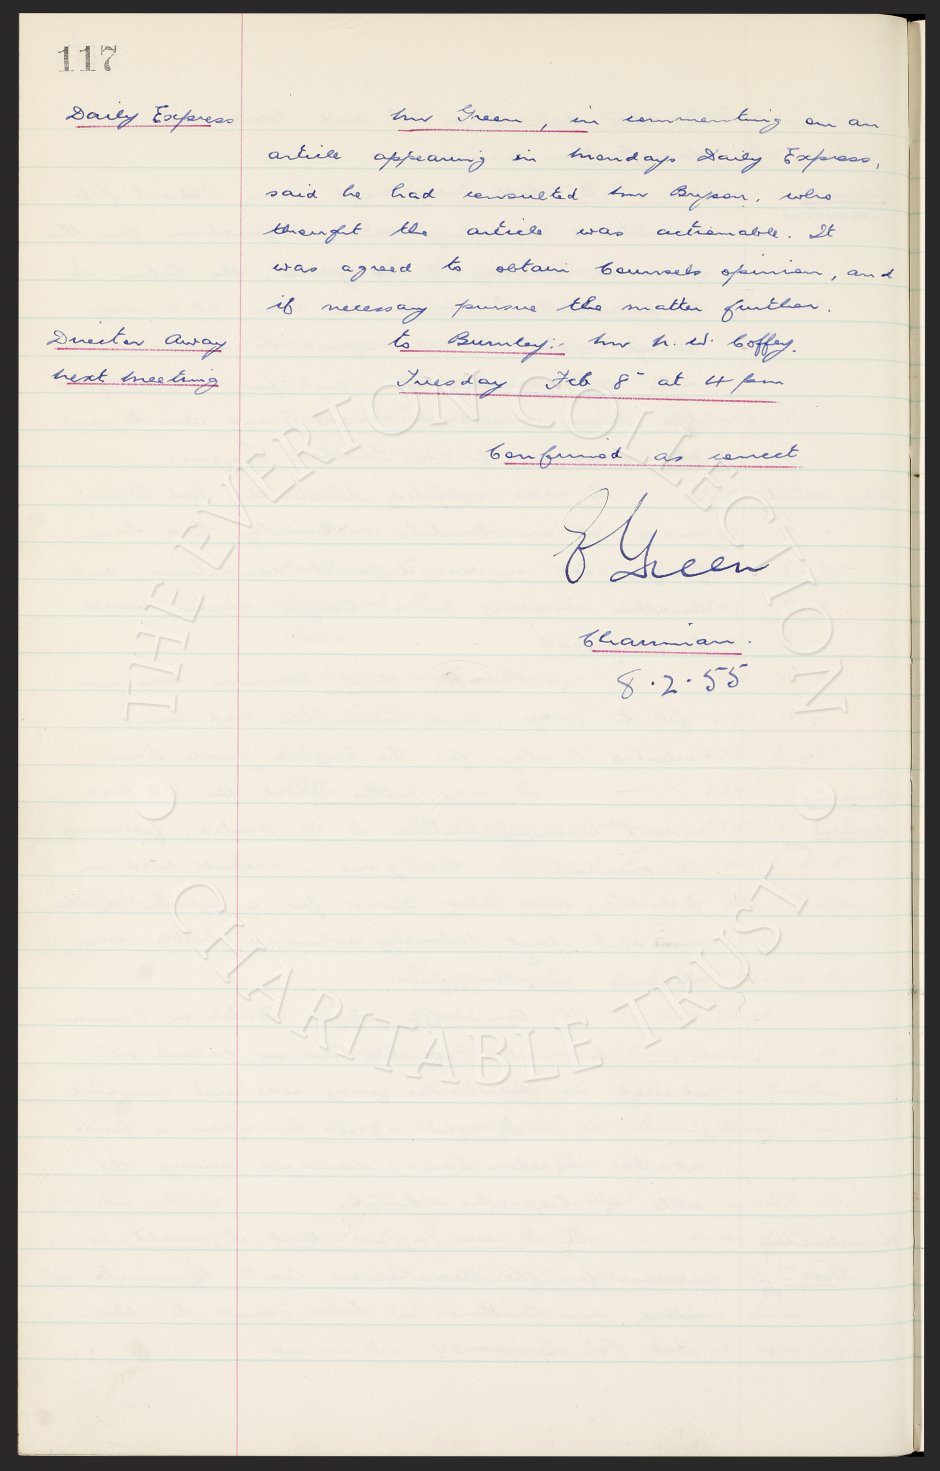 117
Daily Express
Mr Green, in commenting on an
article appearing in Mondays Daily Express,
said he had consulted Mr Bryson, who
thought the article was actionable. It
was agreed to obtain Counsels opinion, and
if necessary pursue the matter further.
Director Away
to Burnley:- Mr N. W. Coffey.
Next Meeting
Tuesday Feb 8" at 4 pm
Confirmed as correct
E Green
Chairman.
8.2.55
THE EVERTON COLLECTION
CHARITABLE TRUST